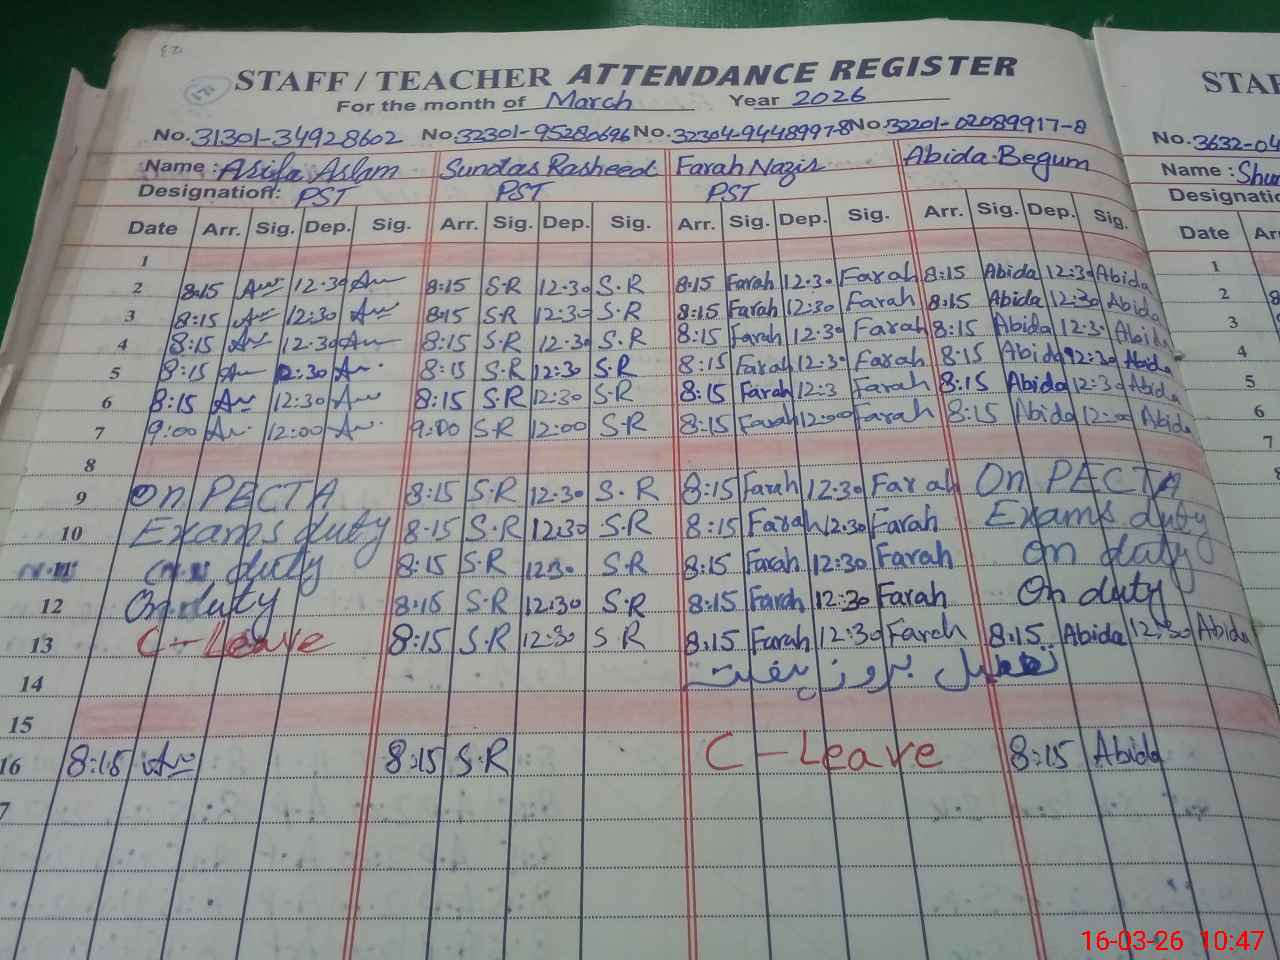 STAFF / TEACHER ATTENDANCE REGISTER
For the month of March Year 2026
No. 31301-34928602 No. 32301-95280696 No. 32304-9448997-8 No. 32201-02089917-8
Name : Asifa Aslam Sundas Rasheed Farah Nazis Abida Begum
Designation: PST PST PST
Date Arr. Sig. Dep. Sig. Arr. Sig. Dep. Sig. Arr. Sig. Dep. Sig. Arr. Sig. Dep. Sig.
1
2 8:15 12:30 8:15 S.R 12:30 S.R 8:15 Farah 12:30 Farah 8:15 Abida 12:30 Abida
3 8:15 12:30 8:15 S.R 12:30 S.R 8:15 Farah 12:30 Farah 8:15 Abida 12:30 Abida
4 8:15 12:30 8:15 S.R 12:30 S.R 8:15 Farah 12:30 Farah 8:15 Abida 12:3 Abida
5 8:15 12:30 8:15 S.R 12:30 S.R 8:15 Farah 12:30 Farah 8:15 Abida 12:30 Abida
6 8:15 12:30 8:15 S.R 12:30 S.R 8:15 Farah 12:3 Farah 8:15 Abida 12:30 Abida
7 9:00 12:00 9:00 S.R 12:00 S.R 8:15 Farah 12:00 Farah 8:15 Abida 12:00 Abida
8
9 On PECTA 8:15 S.R 12:30 S.R 8:15 Farah 12:30 Farah On PECTA
10 Exams duty 8:15 S.R 12:30 S.R 8:15 Farah 12:30 Farah Exams duty
duty 8:15 S.R 12:30 S.R 8:15 Farah 12:30 Farah on duty
12 On duty 8:15 S.R 12:30 S.R 8:15 Farah 12:30 Farah On duty
13 C-Leave 8:15 S.R 12:30 S.R 8:15 Farah 12:30 Farah 8:15 Abida 12:30 Abida
14 تعطیل بروز ہفتہ
15
16 8:15 8:15 S.R C-Leave 8:15 Abida
7
STAF
No. 3632-04
Name : Shu
Designatio
Date Ar
1
2 8
3
4
5
6
7
8
16-03-26 10:47